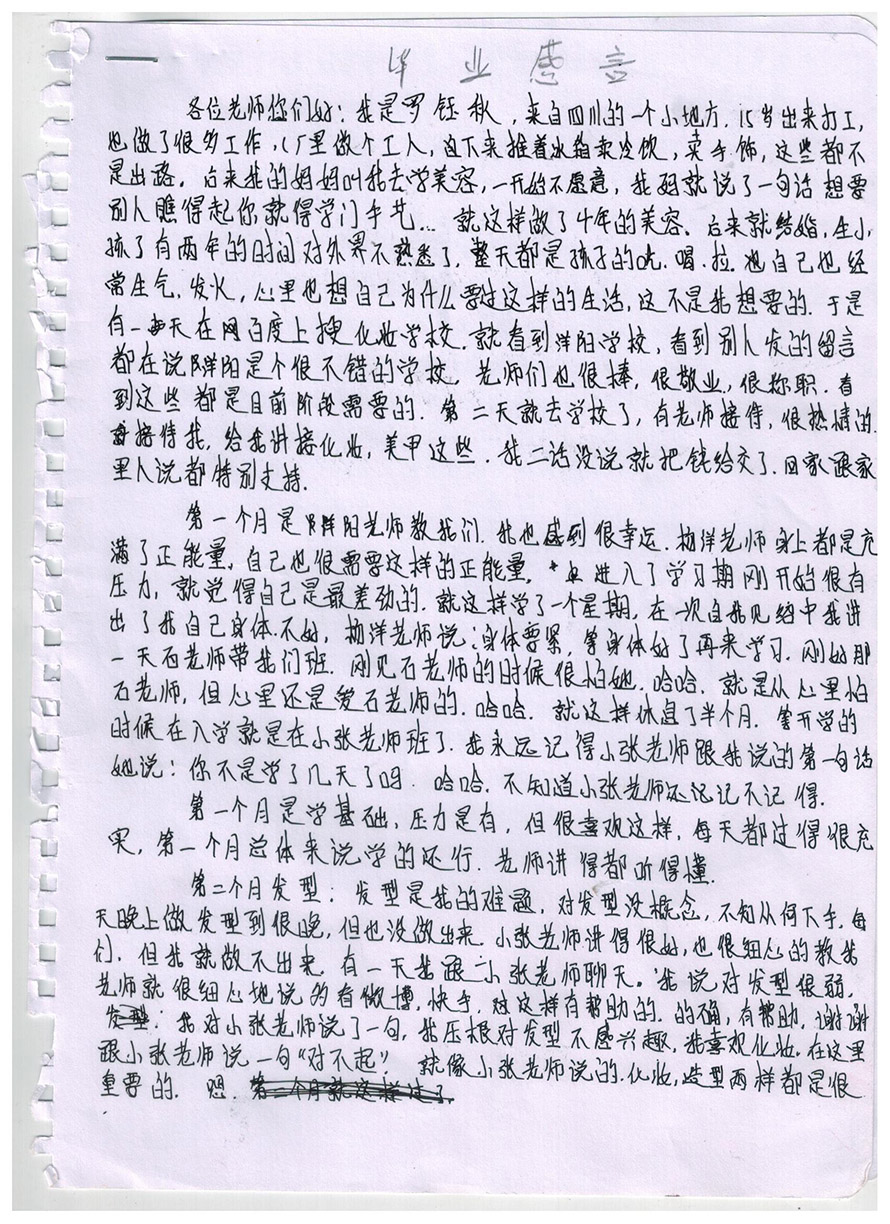 毕业感言
各位老师你们好：我是罗钰秋，来自四川的一个小地方．15岁出来打工，
也做了很多工作，厂里做个工人，边下来推着冰箱卖冷饮，卖手饰，这些都不
是出路。后来我的妈妈叫我去学美容，一开始不愿意，我妈就说了一句话想要
别人瞧得起你就得学门手艺… 就这样做了4年的美容。后来就结婚，生小
孩了有两年的时间对外界不熟悉了，整天都是孩子的吃．喝．拉．也自己也经
常生气，发火，心里也想自己为什么要过这样的生活，这不是我想要的．于是
有一天在网百度上搜化妆学校，就看到洋阳学校，看到别人发的留言
都在说洋阳是个很不错的学校，老师们也很棒，很敬业，很称职．看
到这些都是目前阶段需要的．第二天就去学校了，有老师接待，很热情的
接待我，给我讲接化妆，美甲这些．我二话没说就把钱给交了．回家跟家
里人说都特别支持．
第一个月是洋阳老师教我们．我也感到很幸运．杨洋老师身上都是充
满了正能量，自己也很需要这样的正能量．进入了学习期刚开始很有
压力，就觉得自己是最差劲的．就这样学了一个星期，在一次自我见绍中我讲
出了我自己身体不好，杨洋老师说：身体要紧，等身体好了再来学习．刚好那
一天石老师带我们班．刚见石老师的时候很怕她．哈哈．就是从心里怕
石老师，但心里还是爱石老师的．哈哈．就这样休息了半个月．等开学的
时候在入学就是在小张老师班了．我永远记得小张老师跟我说的第一句话
她说：你不是学了几天了吗．哈哈．不知道小张老师还记记不记得．
第一个月是学基础，压力是有，但很喜欢这样，每天都过得很充
实，第一个月总体来说学的还行．老师讲得都听得懂．
第二个月发型：发型是我的难题，对发型没概念，不知从何下手，每
天晚上做发型到很晚，但也没做出来．小张老师讲得很好，也很细心的教我
们．但我就做不出来．有一天我跟小张老师聊天．我说对发型很弱，
老师就很细心地说多看微博，快手，对这样有帮助的．的确，有帮助，谢谢
发型：我对小张老师说了一句，我压根对发型不感兴趣，我喜欢化妆．在这里
跟小张老师说一句“对不起”．就像小张老师说的．化妆，造型两样都是很
重要的．嗯．